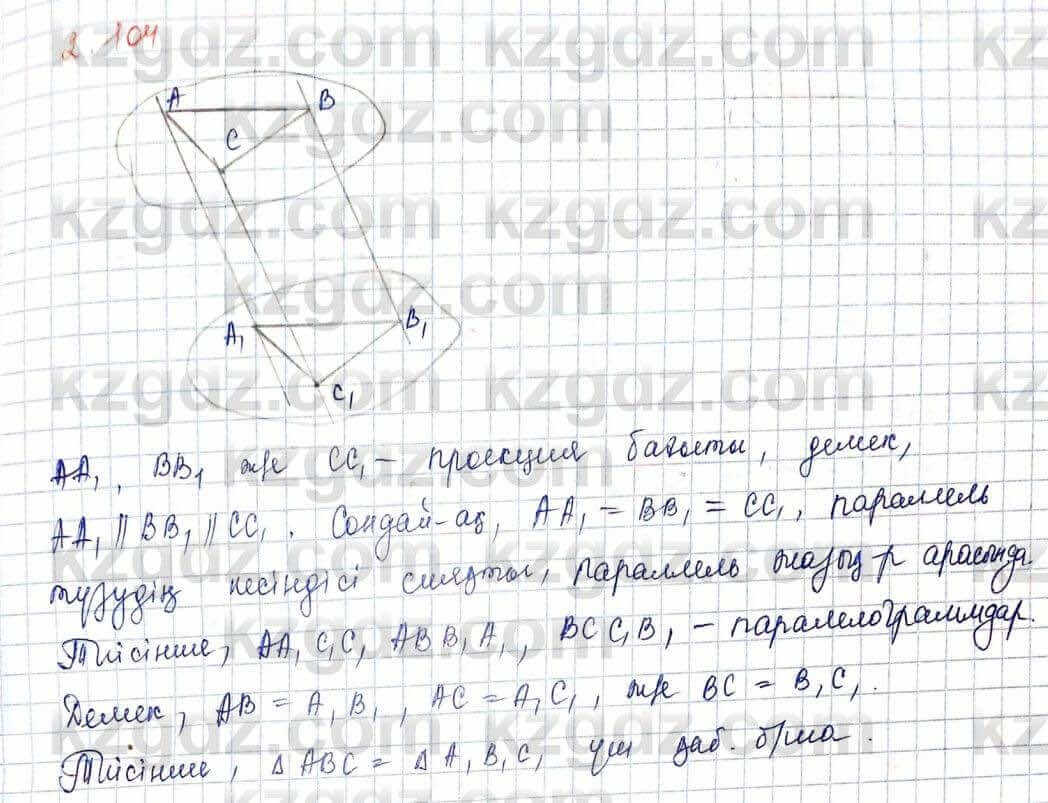 2.104
A
B
C
A₁
B₁
C₁
AA₁, BB₁ және CC₁ – проекция бағыты, демек,
AA₁ || BB₁ || CC₁. Сондай-ақ, AA₁ = BB₁ = CC₁, параллель
түзудің кесіндісі сияқты, параллель жазық-р арасында.
Тиісінше, AA₁C₁C, ABB₁A₁, BCC₁B₁ – паралелограммдар.
Демек, AB = A₁B₁, AC = A₁C₁, және BC = B₁C₁.
Тиісінше, Δ ABC = Δ A₁B₁C₁ үш қаб. б/ша.
kzgdz.com